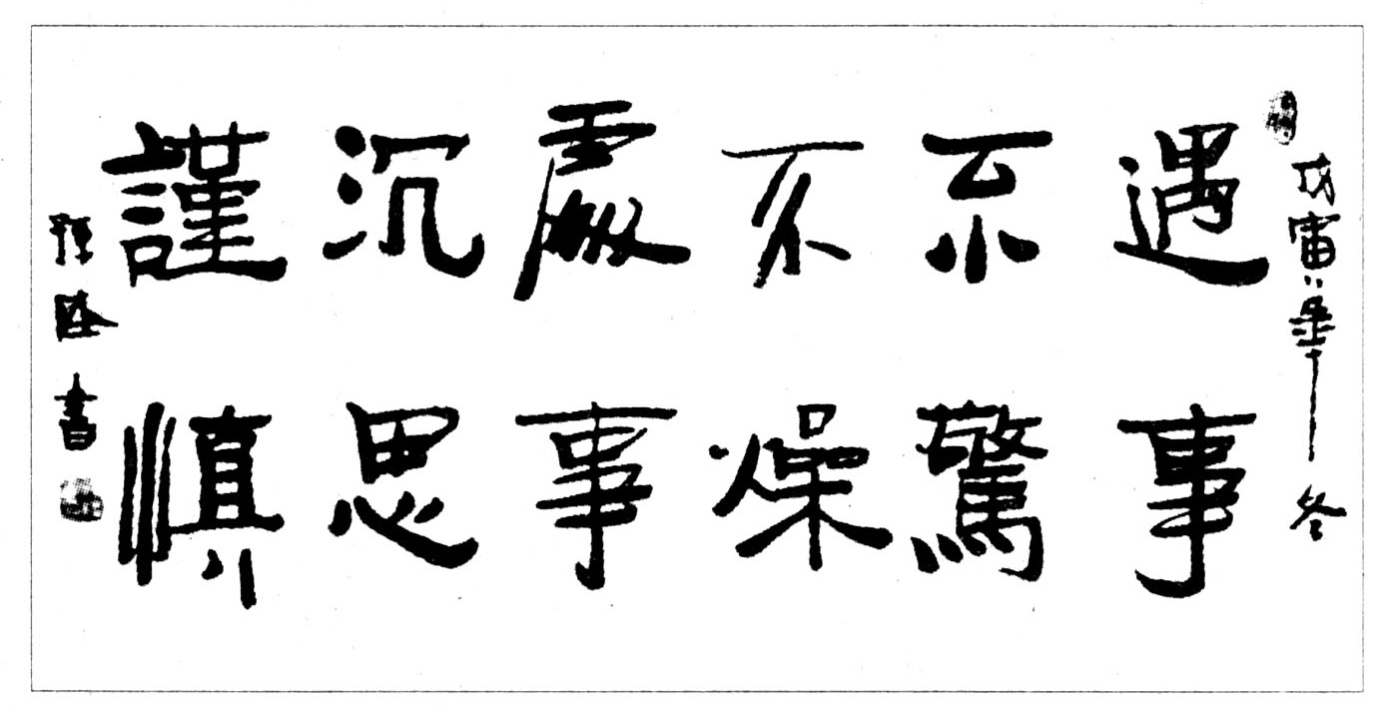 戊寅年冬
遇事
不驚
不燥
處事
沉思
謹慎
書